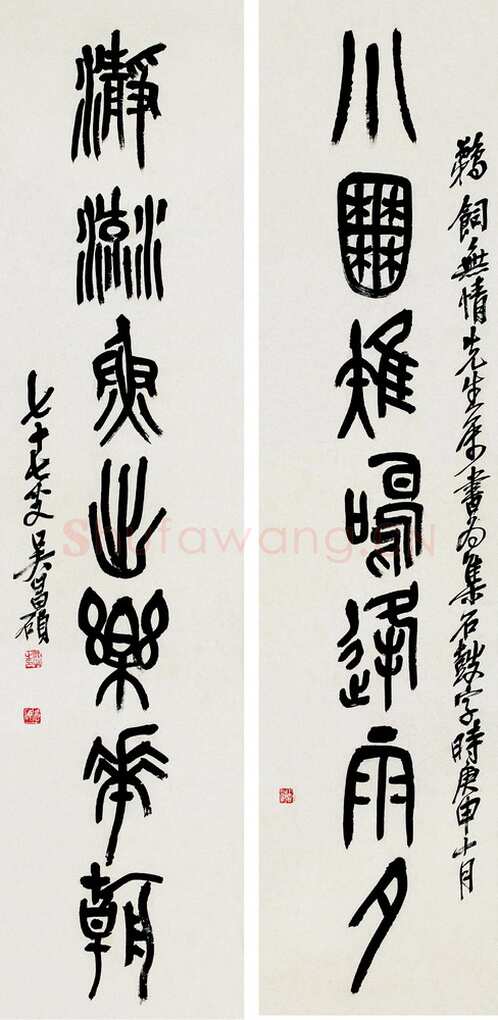 小囿雉鳴逢雨夕
飼無情先生屬書為集石鼓字時庚申十月
瀞流魚出樂華朝
七十七叟吳昌碩
Shufawang.CN